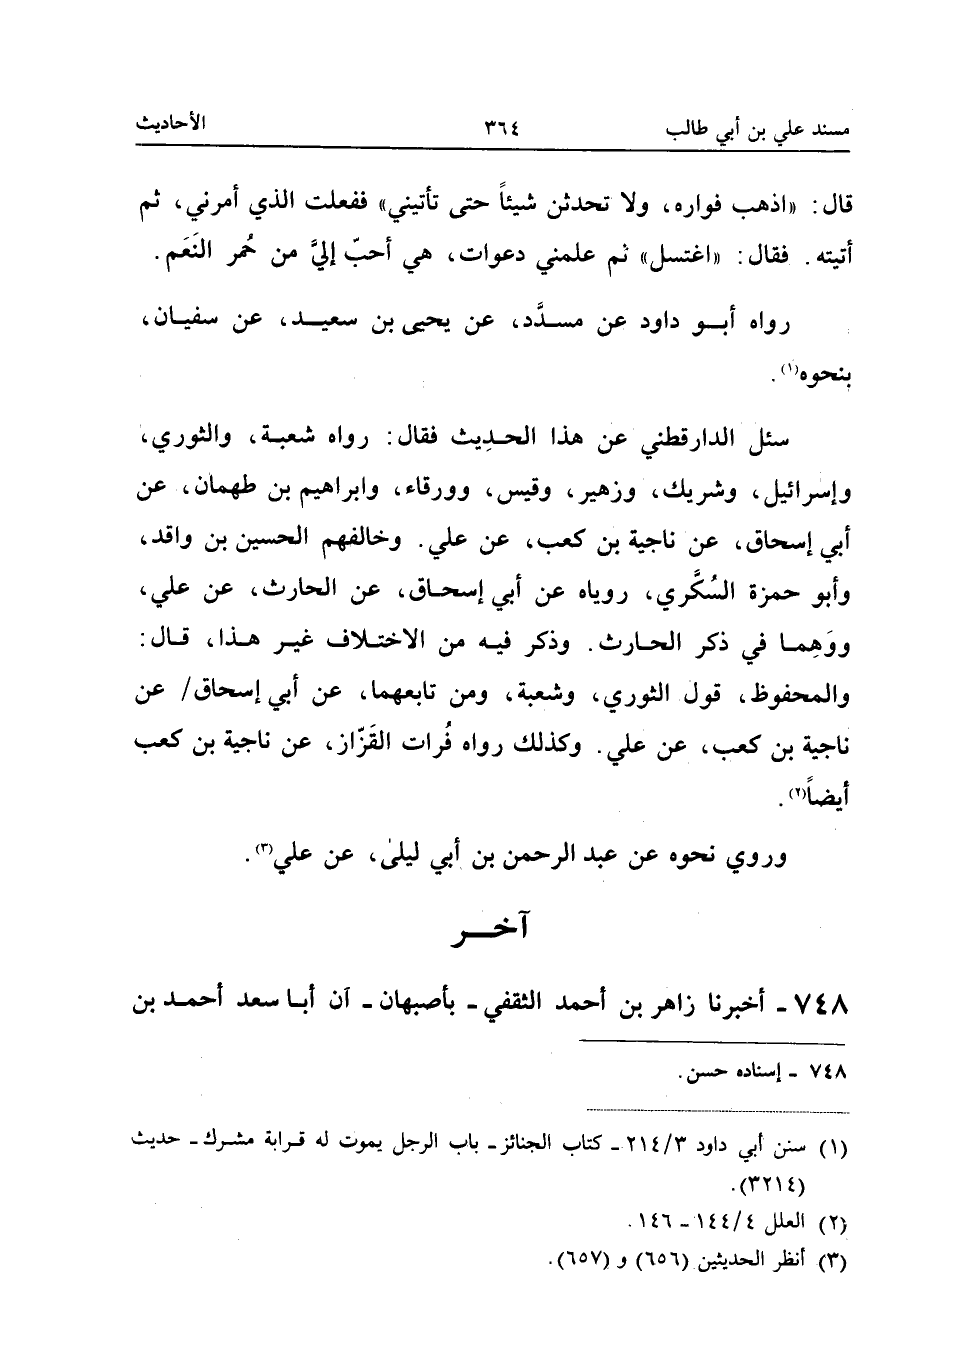 مسند علي بن أبي طالب ٣٦٤ الأحاديث
قال: «اذهب فواره، ولا تحدثن شيئاً حتى تأتيني» ففعلت الذي أمرني، ثم
أتيته. فقال: «اغتسل» ثم علمني دعوات، هي أحبّ إليَّ من حُمر النَعَم.
رواه أبـو داود عن مسـدَّد، عن يحيى بن سعيـد، عن سفيـان،
بنحوه(١).
سئل الدارقطني عن هذا الحـدِيث فقال: رواه شعبـة، والثوري،
وإسرائيل، وشريك، وزهير، وقيس، وورقاء، وابراهيم بن طهمان، عن
أبي إسحاق، عن ناجية بن كعب، عن علي. وخالفهم الحسين بن واقد،
وأبو حمزة السُكَّري، روياه عن أبي إسحـاق، عن الحارث، عن علي،
ووَهِمـا في ذكر الحـارث. وذكر فيـه من الاختـلاف غيـر هـذا، قـال:
والمحفوظ، قول الثوري، وشعبة، ومن تابعهما، عن أبي إسحاق/ عن
ناجية بن كعب، عن علي. وكذلك رواه فُرات القَزّاز، عن ناجية بن كعب
أيضاً(٢).
وروي نحوه عن عبد الرحمن بن أبي ليلىٰ، عن علي(٣).
آخـــر
٧٤٨ ـ أخبرنا زاهر بن أحمد الثقفي ـ بأصبهان ـ أن أبـا سعد أحمـد بن
٧٤٨ ـ إسناده حسن.
(١) سنن أبي داود ٢١٤/٣ ـ كتاب الجنائز ـ باب الرجل يموت له قـرابة مشـرك ـ حديث
(٣٢١٤).
(٢) العلل ١٤٤/٤ ـ ١٤٦.
(٣) أنظر الحديثين (٦٥٦) و (٦٥٧).